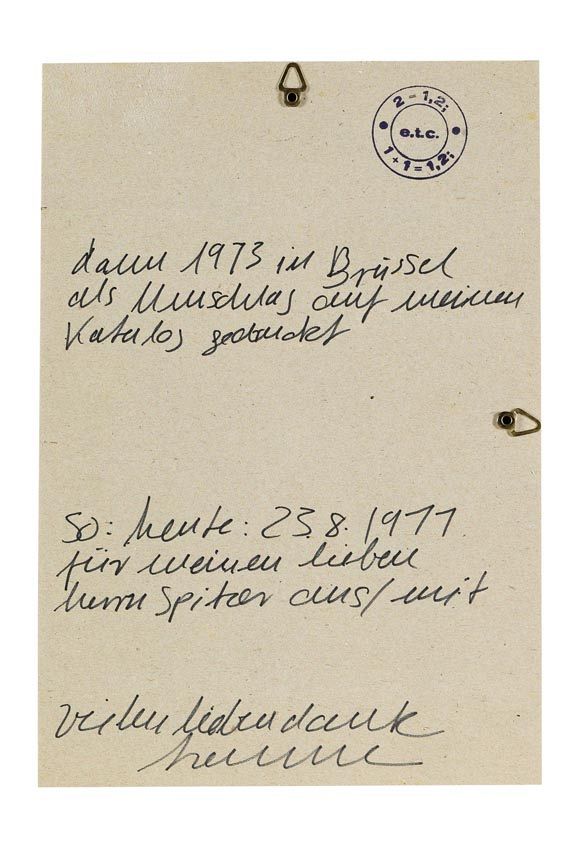 2 = 1,2;
e.t.c.
1 + 1 = 1,2;
dann 1973 in Brüssel
als Umschlag auf meinen
Katalog gedruckt
so: heute: 23.8.1977.
für meinen lieben
herrn Spitzer aus/mit
vielen lieben dank
hanne